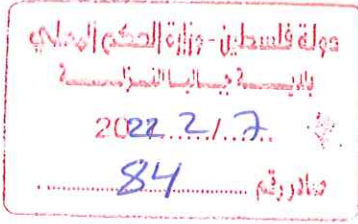 دولة فلسطين - وزارة الحكم المحلي
بلديـــة جبـاليـا النـزلـــــة
2022...2./..7..
صادر رقم ......84......